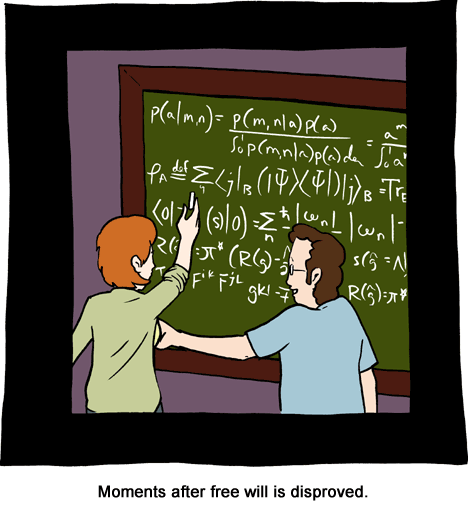 p(a|m,n) = p(m,n|a)p(a) / ∫₀¹p(m,n|a)p(a)da = aᵐ / ∫₀¹aᵐ
ρ_A ≝ Σ ⟨j|_B (|Ψ⟩⟨Ψ|)|j⟩_B = Tr
⟨0| (s)|0⟩ = Σ_n |ω_n| |ω_n| -
R( = π* (R(ŝ) - s(ŝ = Λ
F^{ik} F^{jL} gkl R(ŝ) = π*
Moments after free will is disproved.